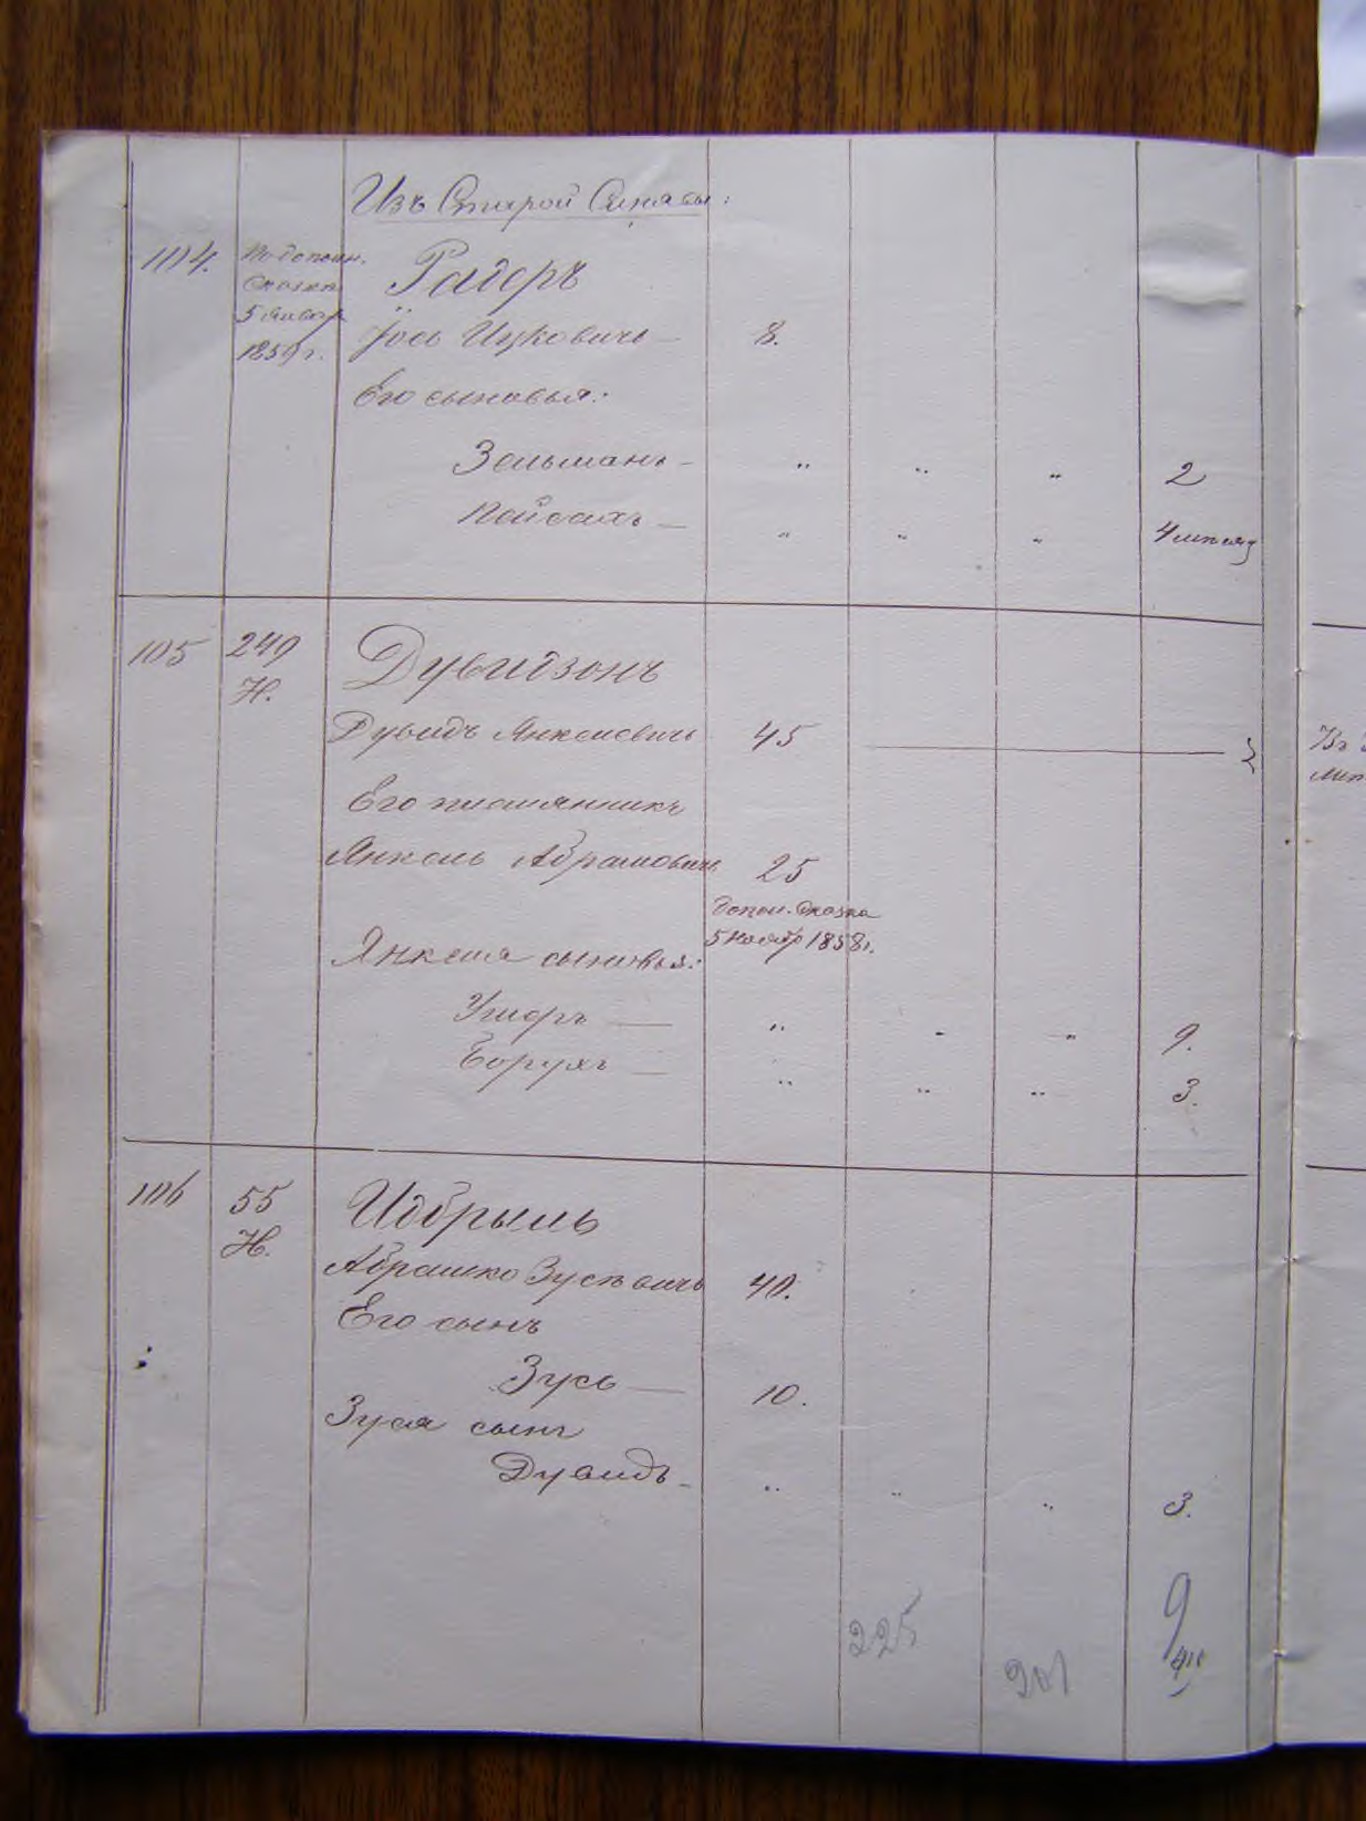 Изъ Старой Синявы:
104. По допол. Радеръ
сказкѣ
5 Январ
1859 г. Іось Ицковичъ — 8.
Его сыновья:
Зельманъ — " " " 2
Пейсахъ — " " " 4 мѣсяц
105 249 Дувидзонъ
Н.
Дувидъ Янкелевичъ 45
Его племянникъ
Янкель Абрамовичъ 25
допол. сказка
5 Ноябр 1858 г.
Янкеля сыновья:
Ушеръ — " " " 9.
Борухъ — " " " 3.
106 55 Идбрыль
Н.
Абрашко Зусевичъ 40.
Его сынъ
Зусь — 10.
Зуся сынъ
Дувидъ - " " " 3.
9
225
201